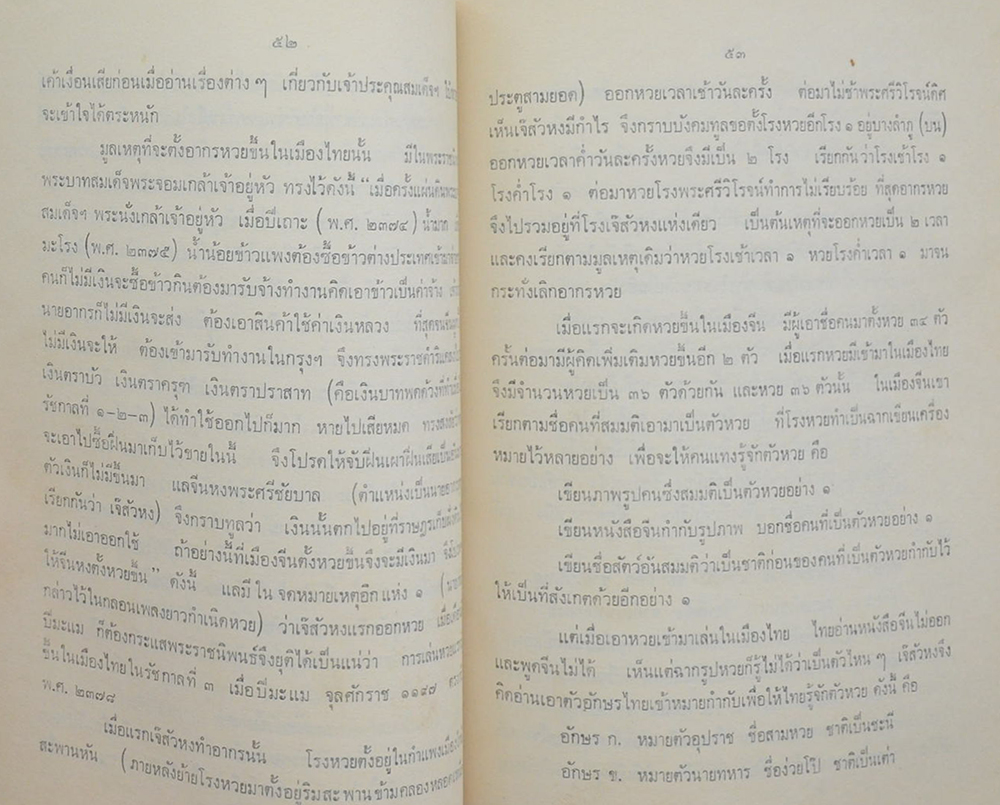 ๕๒
เค้าเงื่อนเสียก่อนเมื่ออ่านเรื่องต่าง ๆ เกี่ยวกับเจ้าประคุณสมเด็จฯ
จะเข้าใจได้ตระหนัก
มูลเหตุที่จะตั้งอากรหวยขึ้นในเมืองไทยนั้น มีในพระราช
พระบาทสมเด็จพระจอมเกล้าเจ้าอยู่หัว ทรงไว้ดังนี้ “เมื่อครั้งแผ่นดิน
สมเด็จฯ พระนั่งเกล้าเจ้าอยู่หัว เมื่อปีเถาะ (พ.ศ. ๒๓๗๔) น้ำมาก
มะโรง (พ.ศ. ๒๓๗๕) น้ำน้อยข้าวแพงต้องซื้อข้าวต่างประเทศเข้ามา
คนก็ไม่มีเงินจะซื้อข้าวกินต้องมารับจ้างทำงานคิดเอาข้าวเป็นค่าจ้าง
นายอากรก็ไม่มีเงินจะส่ง ต้องเอาสินค้าใช้ค่าเงินหลวง ที่สุดจน
ไม่มีเงินจะให้ ต้องเข้ามารับทำงานในกรุงฯ จึงทรงพระราชดำริ
เงินตราบัว เงินตราครุฑ เงินตราปราสาท (คือเงินบาทพดด้วง
รัชกาลที่ ๑-๒-๓) ได้ทำใช้ออกไปก็มาก หายไปเสียหมด ทรงสงสัย
จะเอาไปซื้อฝิ่นมาเก็บไว้ขายในนี้ จึงโปรดให้จับฝิ่นเผาฝิ่นเสียเป็น
ตัวเงินก็ไม่มีขึ้นมา แลจีนหงพระศรีชัยบาล (ตำแหน่งเป็นนายอากร
เรียกกันว่า เจ๊สัวหง) จึงกราบทูลว่า เงินนั้นตกไปอยู่ที่ราษฎรเก็บ
มากไม่เอาออกใช้ ถ้าอย่างนี้ที่เมืองจีนตั้งหวยขึ้นจึงจะมีเงินมา
ให้จีนหงตั้งหวยขึ้น” ดังนี้ แลมีในจดหมายเหตุอีกแห่ง ๑
กล่าวไว้ในกลอนเพลงยาวกำเนิดหวย) ว่าเจ๊สัวหงแรกออกหวย
ปีมะแม ก็ต้องกระแสพระราชนิพนธ์จึงยุติได้เป็นแน่ว่า การเล่นหวย
ขึ้นในเมืองไทยในรัชกาลที่ ๓ เมื่อปีมะแม จุลศักราช ๑๑๙๗
พ.ศ. ๒๓๗๘
เมื่อแรกเจ๊สัวหงทำอากรนั้น โรงหวยตั้งอยู่ในกำแพงเมือง
สะพานหัน (ภายหลังย้ายโรงหวยมาตั้งอยู่ริมสะพานข้ามคลองหลอด
๕๓
ประตูสามยอด) ออกหวยเวลาเช้าวันละครั้ง ต่อมาไม่ช้าพระศรีวิโรจน์ดิศ
เห็นเจ๊สัวหงมีกำไร จึงกราบบังคมทูลขอตั้งโรงหวยอีกโรง ๑ อยู่บางลำภู (บน)
ออกหวยเวลาค่ำวันละครั้งหวยจึงมีเป็น ๒ โรง เรียกกันว่าโรงเช้าโรง ๑
โรงค่ำโรง ๑ ต่อมาหวยโรงพระศรีวิโรจน์ทำการไม่เรียบร้อย ที่สุดอากรหวย
จึงไปรวมอยู่ที่โรงเจ๊สัวหงแห่งเดียว เป็นต้นเหตุที่จะออกหวยเป็น ๒ เวลา
และคงเรียกตามมูลเหตุเดิมว่าหวยโรงเช้าเวลา ๑ หวยโรงค่ำเวลา ๑ มาจน
กระทั่งเลิกอากรหวย
เมื่อแรกจะเกิดหวยขึ้นในเมืองจีน มีผู้เอาชื่อคนมาตั้งหวย ๓๔ ตัว
ครั้นต่อมามีผู้คิดเพิ่มเติมหวยขึ้นอีก ๒ ตัว เมื่อแรกหวยมีเข้ามาในเมืองไทย
จึงมีจำนวนหวยเป็น ๓๖ ตัวด้วยกัน และหวย ๓๖ ตัวนั้น ในเมืองจีนเขา
เรียกตามชื่อคนที่สมมติเอามาเป็นตัวหวย ที่โรงหวยทำเป็นฉากเขียนเครื่อง
หมายไว้หลายอย่าง เพื่อจะให้คนแทงรู้จักตัวหวย คือ
เขียนภาพรูปคนซึ่งสมมติเป็นตัวหวยอย่าง ๑
เขียนหนังสือจีนกำกับรูปภาพ บอกชื่อคนที่เป็นตัวหวยอย่าง ๑
เขียนชื่อสัตว์อันสมมติว่าเป็นชาติก่อนของคนที่เป็นตัวหวยกำกับไว้
ให้เป็นที่สังเกตด้วยอีกอย่าง ๑
แต่เมื่อเอาหวยเข้ามาเล่นในเมืองไทย ไทยอ่านหนังสือจีนไม่ออก
และพูดจีนไม่ได้ เห็นแต่ฉากรูปหวยก็รู้ไม่ได้ว่าเป็นตัวไหน ๆ เจ๊สัวหงจึง
คิดอ่านเอาตัวอักษรไทยเข้าหมายกำกับเพื่อให้ไทยรู้จักตัวหวย ดังนี้ คือ
อักษร ก. หมายตัวอุปราช ชื่อสามหวย ชาติเป็นชะนี
อักษร ข. หมายตัวนายทหาร ชื่อง่วยโป๊ ชาติเป็นเต่า